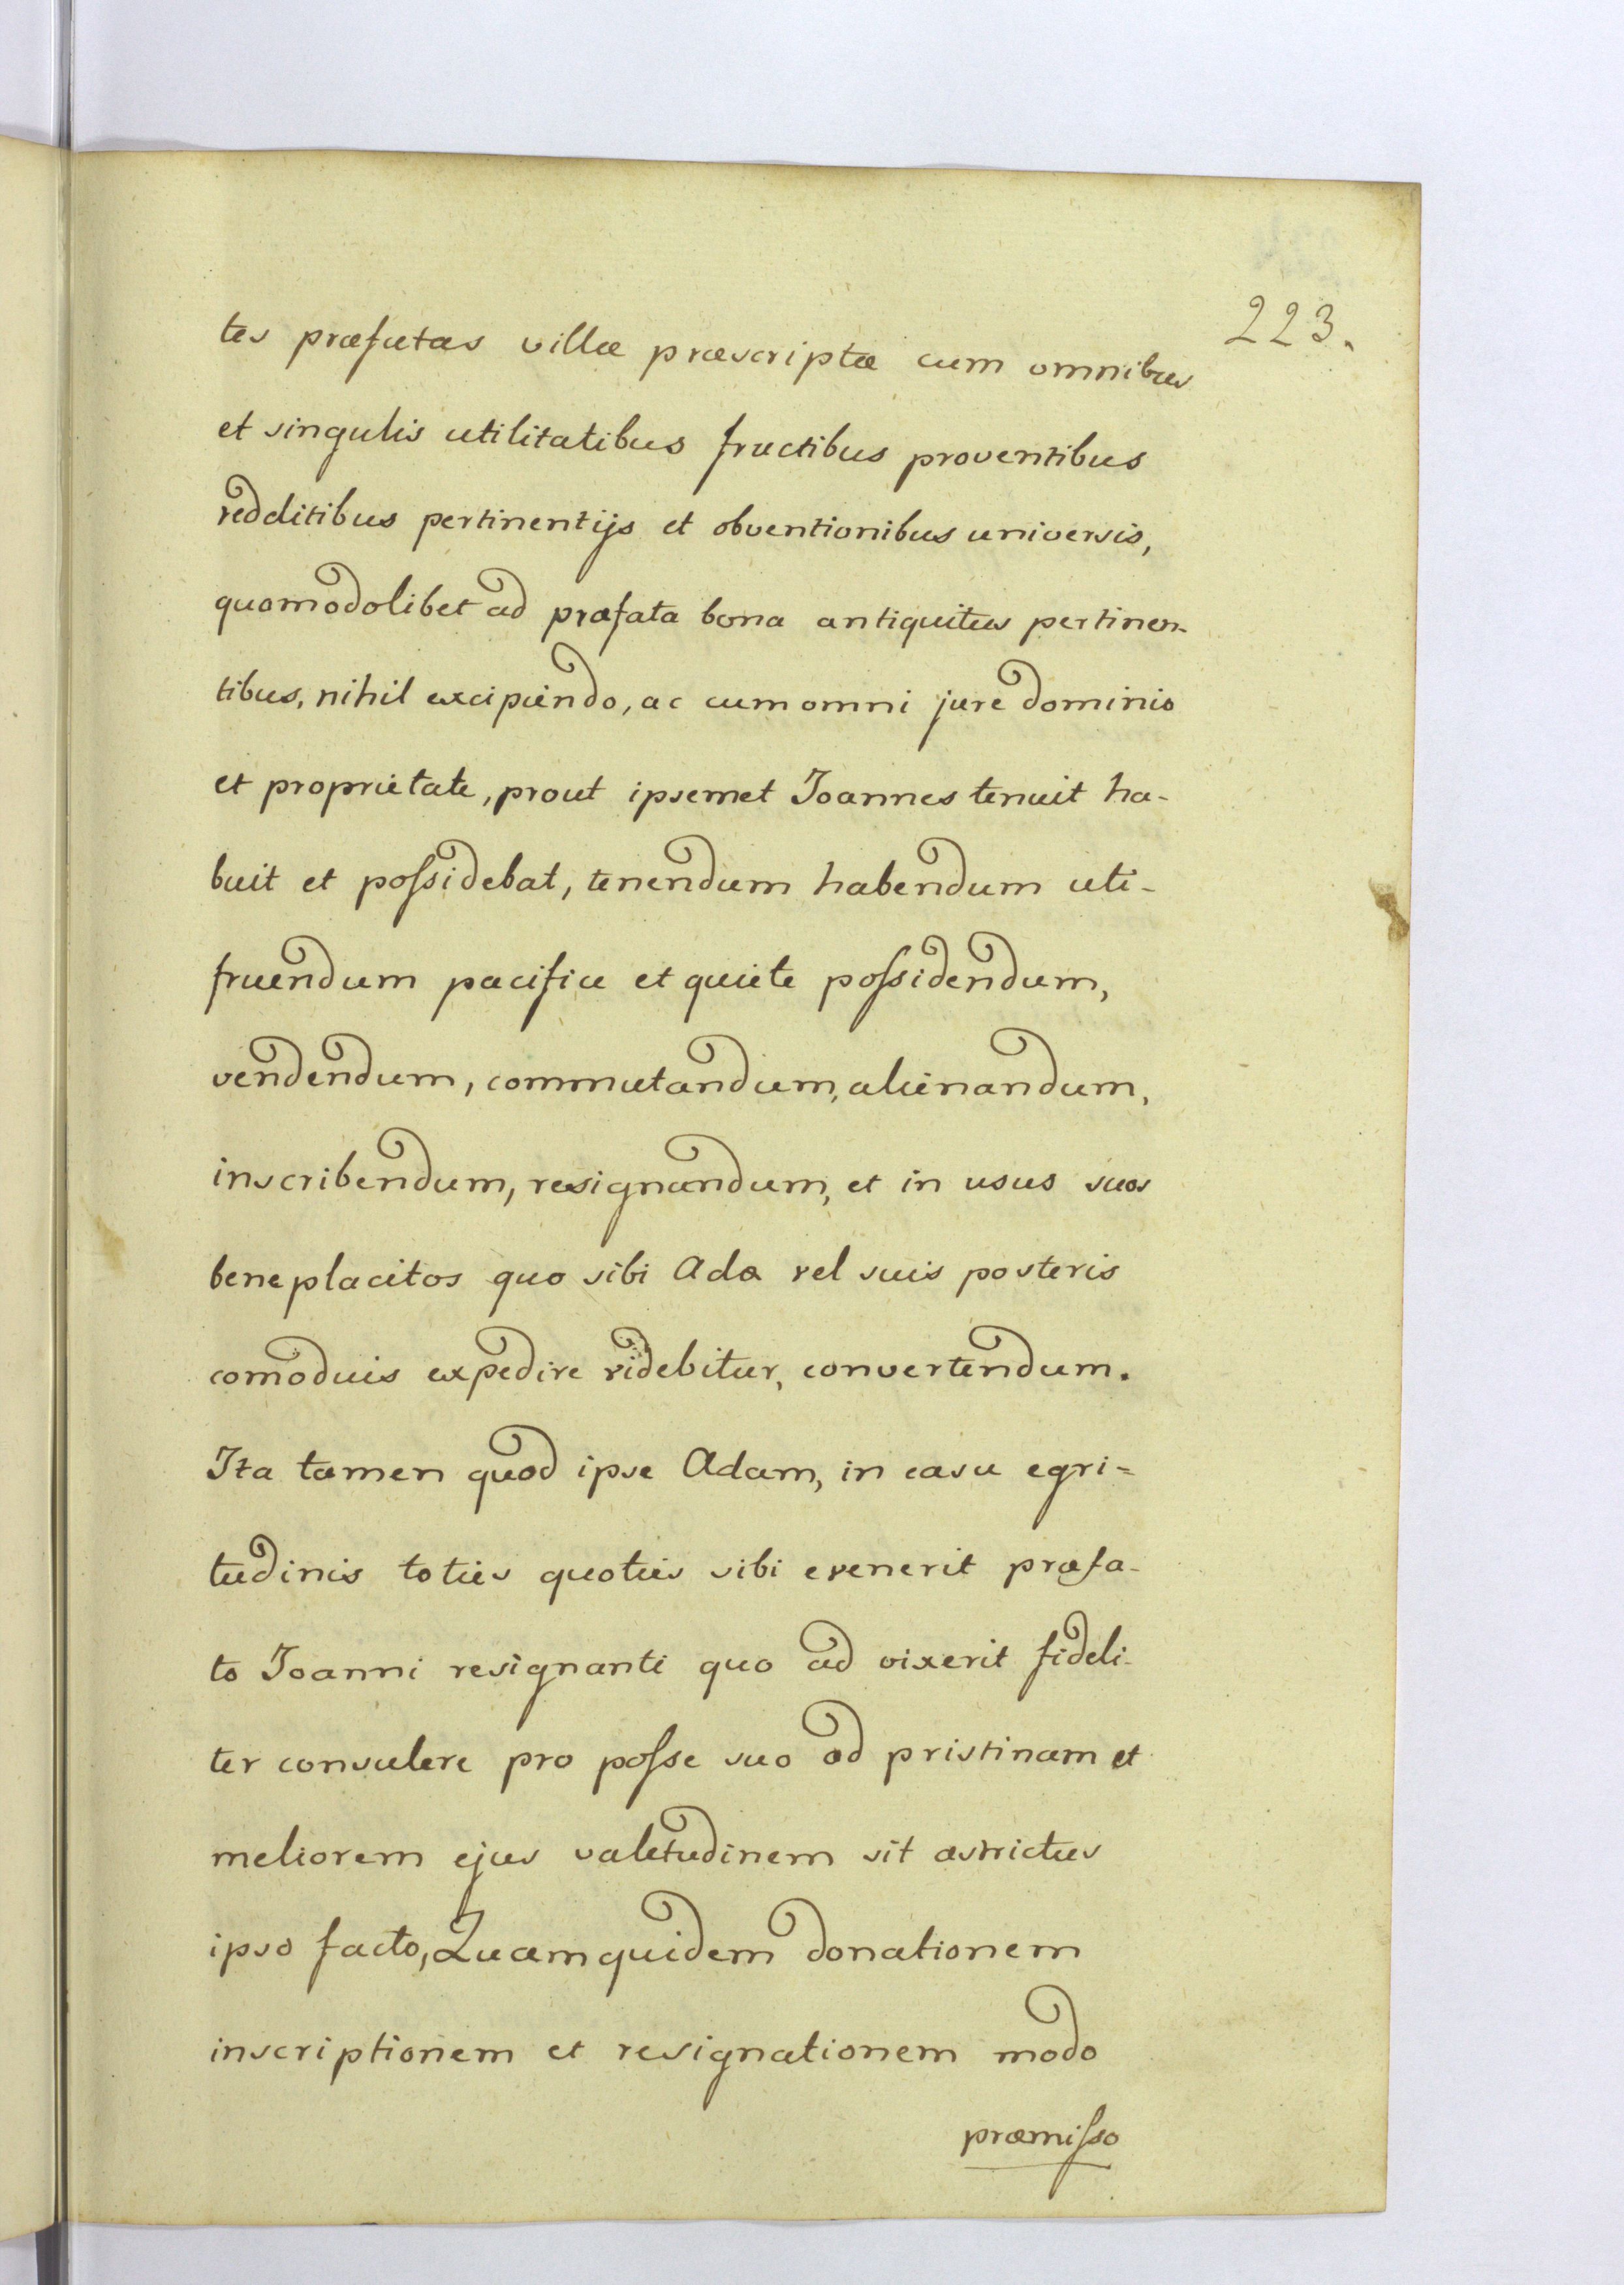 223.
tes præfatas villæ præscriptæ cum omnibus
et singulis utilitatibus fructibus proventibus
redditibus pertinentijs et obventionibus universis,
quomodolibet ad præfata bona antiquitus pertinen-
tibus, nihil excipiendo, ac cum omni jure dominio
et proprietate, prout ipsemet Joannes tenuit ha-
buit et poſsidebat, tenendum habendum uti-
fruendum pacifice et quiete poſsidendum,
vendendum, commutandum, alienandum,
inscribendum, resignandum, et in usus suos
beneplacitos quo sibi Adæ vel suis posteris
comoduis expedire videbitur, convertendum.
Ita tamen quod ipse Adam, in casu egri=
tudinis toties quoties sibi evenerit præfa-
to Joanni resignanti quo ad vixerit fideli-
ter consulere pro poſse suo ad pristinam et
meliorem ejus valetudinem sit astrictus
ipso facto, Quam quidem donationem
inscriptionem et resignationem modo
præmiſso